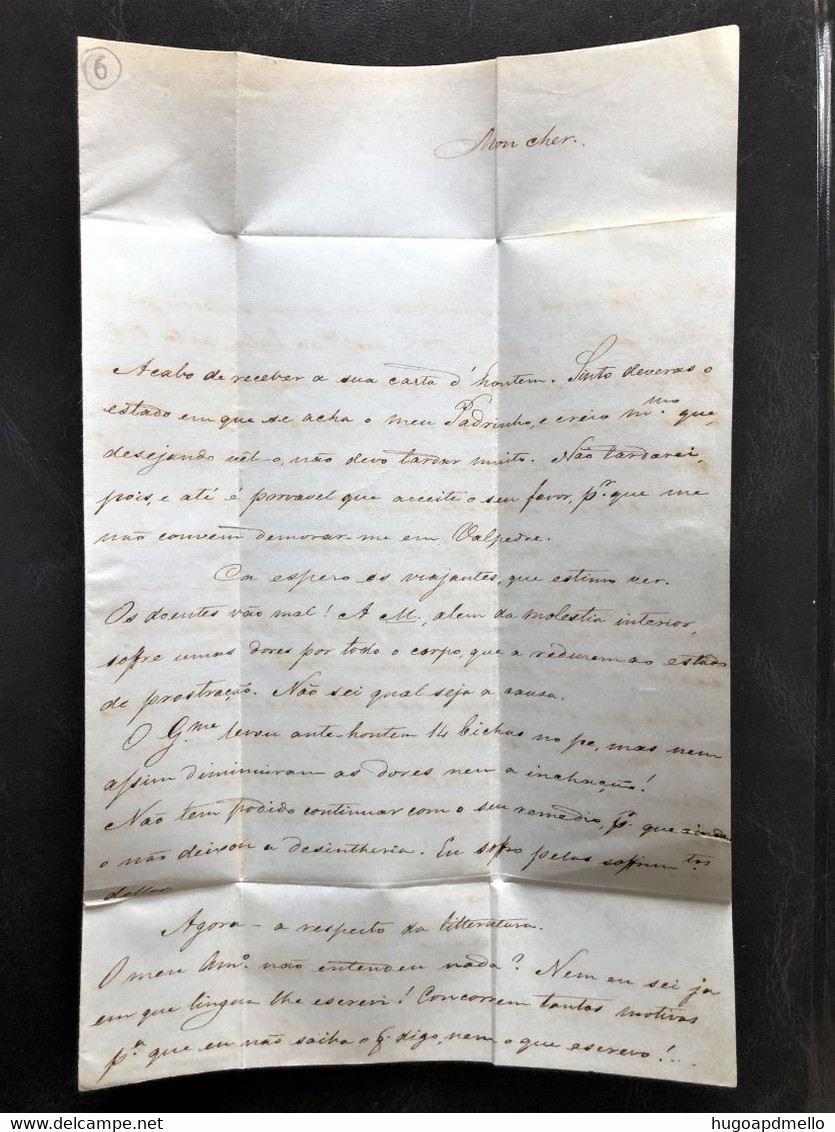 6
Mon cher.
Acabo de receber a sua carta d'hontem. Sinto deveras o
estado em que se acha o meu Padrinho, e creio m.mo que,
desejando vêl-o, não devo tardar muito. Não tardarei,
pois, e até é provavel que acceite o seu favor, pr. que me
não convem demorar-me em Valpedre.
Cá espero os viajantes, que estimo ver.
Os doentes vão mal! A M., alem da molestia interior,
soffre umas dores por todo o corpo, que a reduzem ao estado
de prostração. Não sei qual seja a causa.
O G.me levou ante-hontem 14 bichas no pé, mas nem
assim diminuiram as dores nem a inchação!
Não tem podido continuar com o seu remedio, p. que ainda
o não deixou a desintheria. Eu soffro pelos soffrim.tos
delles
Agora - a respeito da litteratura.
O meu Am.o não entendeu nada? Nem eu sei já
em que lingua lhe escrevi! Concorrem tantos motivos
p.a que eu não saiba o q. digo, nem o que escrevo!...
hugoapdmello